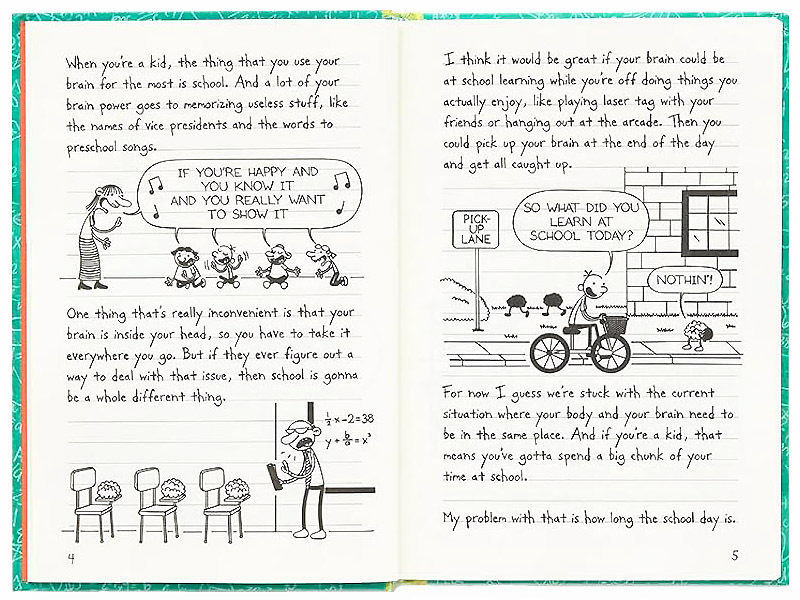 When you're a kid, the thing that you use your
brain for the most is school. And a lot of your
brain power goes to memorizing useless stuff, like
the names of vice presidents and the words to
preschool songs.
IF YOU'RE HAPPY AND
YOU KNOW IT
AND YOU REALLY WANT
TO SHOW IT
One thing that's really inconvenient is that your
brain is inside your head, so you have to take it
everywhere you go. But if they ever figure out a
way to deal with that issue, then school is gonna
be a whole different thing.
½x-2=38
y+b/a=x³
4
I think it would be great if your brain could be
at school learning while you're off doing things you
actually enjoy, like playing laser tag with your
friends or hanging out at the arcade. Then you
could pick up your brain at the end of the day
and get all caught up.
PICK-
UP
LANE
SO WHAT DID YOU
LEARN AT
SCHOOL TODAY?
NOTHIN'!
For now I guess we're stuck with the current
situation where your body and your brain need to
be in the same place. And if you're a kid, that
means you've gotta spend a big chunk of your
time at school.
My problem with that is how long the school day is.
5